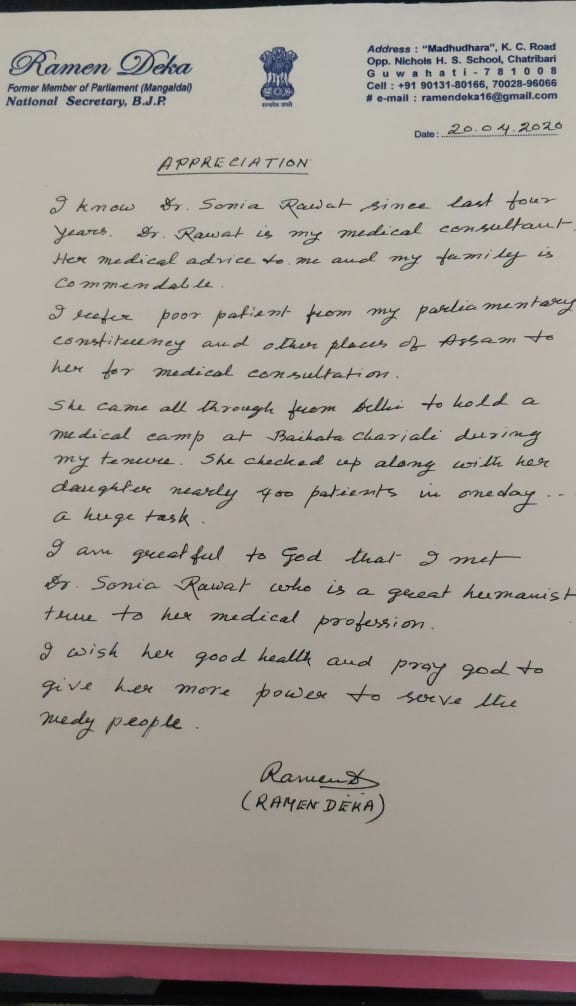 Ramen Deka
Former Member of Parliament (Mangaldai)
National Secretary, B.J.P.
सत्यमेव जयते
Address : "Madhudhara", K. C. Road
Opp. Nichols H. S. School, Chatribari
Guwahati-781008
Cell : +91 90131-80166, 70028-96066
# e-mail : ramendeka16@gmail.com
Date: 20.04.2020
APPRECIATION
I know Dr. Sonia Rawat since last four
years. Dr. Rawat is my medical consultant.
Her medical advice to me and my family is
commendable.
I refer poor patient from my parliamentary
constituency and other places of Assam to
her for medical consultation.
She came all through from Delhi to hold a
medical camp at Baihata chariali during
my tenure. She checked up along with her
daughter nearly 400 patients in oneday..
a huge task.
I am greatful to God that I met
Dr. Sonia Rawat who is a great humanist
true to her medical profession.
I wish her good health and pray god to
give her more power to serve the
needy people.
Ramen D
(RAMEN DEKA)